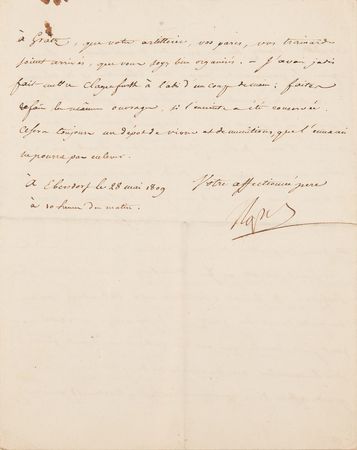 à Gratz, que votre artillerie, vos parcs, vos trainards
soient arrivés, que vous soyez bien organisés. - J'avais jadis
fait mettre Clagenfurth à l'abri d'un coup de main; faites
refaire les mêmes ouvrages, si l'enceinte a été conservée.
Ce sera toujours un dépot de vivres et de munitions que l'ennemi
ne pourra pas enlever.
À Ebersdorf le 28 mai 1809
à 10 heures du matin.
Votre affectionné père
Nap